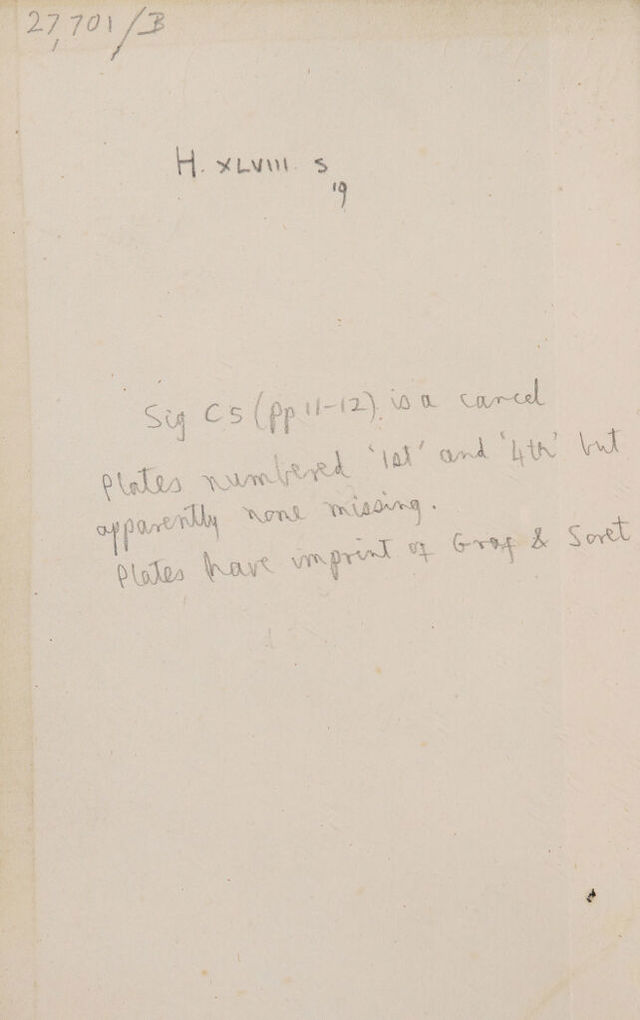 27,701/B
H. XLVIII. S
19
Sig C5 (pp 11-12) is a cancel
Plates numbered '1st' and '4th' but
apparently none missing.
Plates have imprint of Graf & Soret